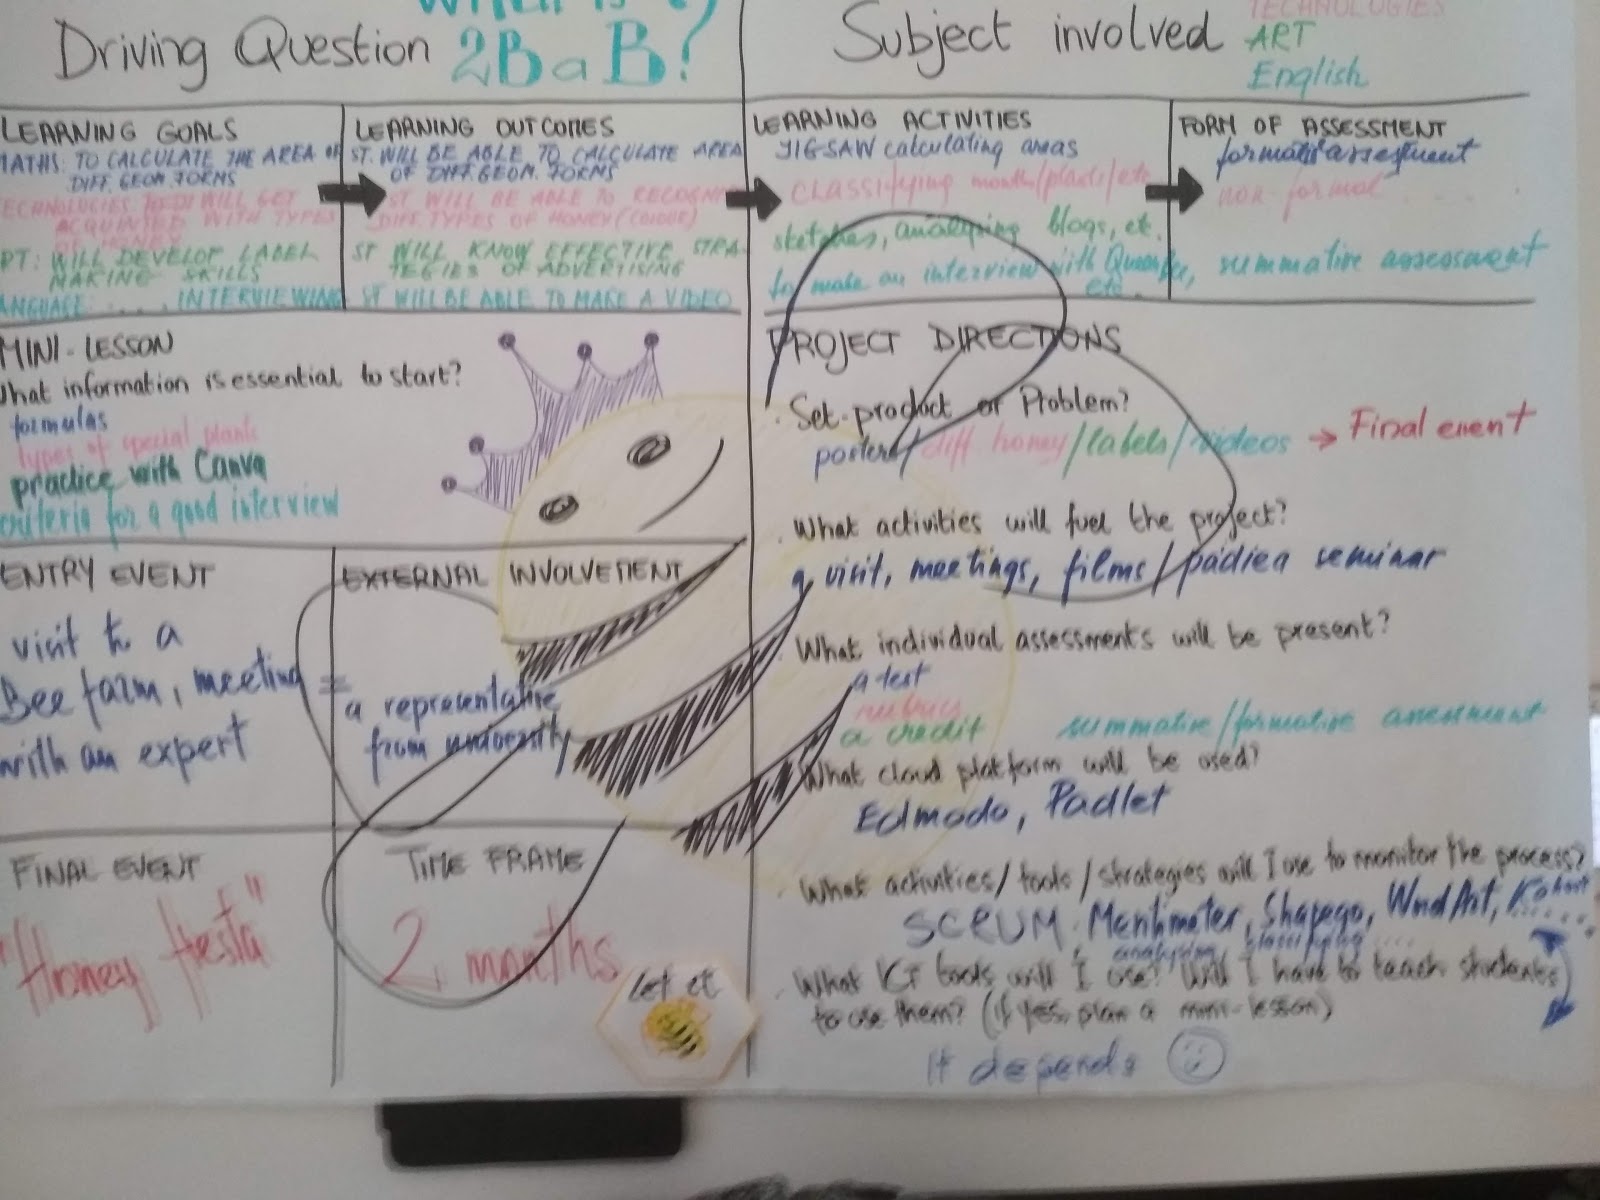 What is it
Driving Question 2B a B?
Subject involved
TECHNOLOGIES
ART
English
LEARNING GOALS
MATHS: TO CALCULATE THE AREA OF
DIFF. GEOM. FORMS
TECHNOLOGIES: WILL GET
ACQUAINTED WITH TYPES
OF HONEY
ART: WILL DEVELOP LABEL
MAKING SKILLS
LANGUAGE: .... INTERVIEWING
LEARNING OUTCOMES
ST. WILL BE ABLE TO CALCULATE AREA
OF DIFF. GEOM. FORMS
ST WILL BE ABLE TO RECOGNIZE
DIFF. TYPES OF HONEY (COLOUR)
ST WILL KNOW EFFECTIVE STRA-
TEGIES OF ADVERTISING
ST WILL BE ABLE TO MAKE A VIDEO
LEARNING ACTIVITIES
JIGSAW calculating areas
classifying month/plants/etc
sketches, analysing blogs, etc.
to make an interview with Queen Bee,
etc.
FORM OF ASSESSMENT
formative assessment
non-formal ....
summative assessment
MINI-LESSON
What information is essential to start?
formulas
types of special plants
practice with Canva
criteria for a good interview
ENTRY EVENT
visit to a
Bee farm, meeting
with an expert
EXTERNAL INVOLVEMENT
= a representative
from university
FINAL EVENT
"Honey fiesta"
TIME FRAME
2 months
Let it
PROJECT DIRECTIONS
. Set-product or Problem?
posters/diff. honey/labels/videos → Final event
. What activities will fuel the project?
a visit, meetings, films/ seminar
. What individual assessments will be present?
a test
rubrics
a credit summative/formative assessment
. What cloud platform will be used?
Edmodo, Padlet
. What activities/tools/strategies will I use to monitor the process?
SCRUM. Mentimeter, Shapego, WordArt, Kahoot
analysing classifying ....
. What ICT tools will I use? Will I have to teach students
to use them? (if yes, plan a mini-lesson)
It depends